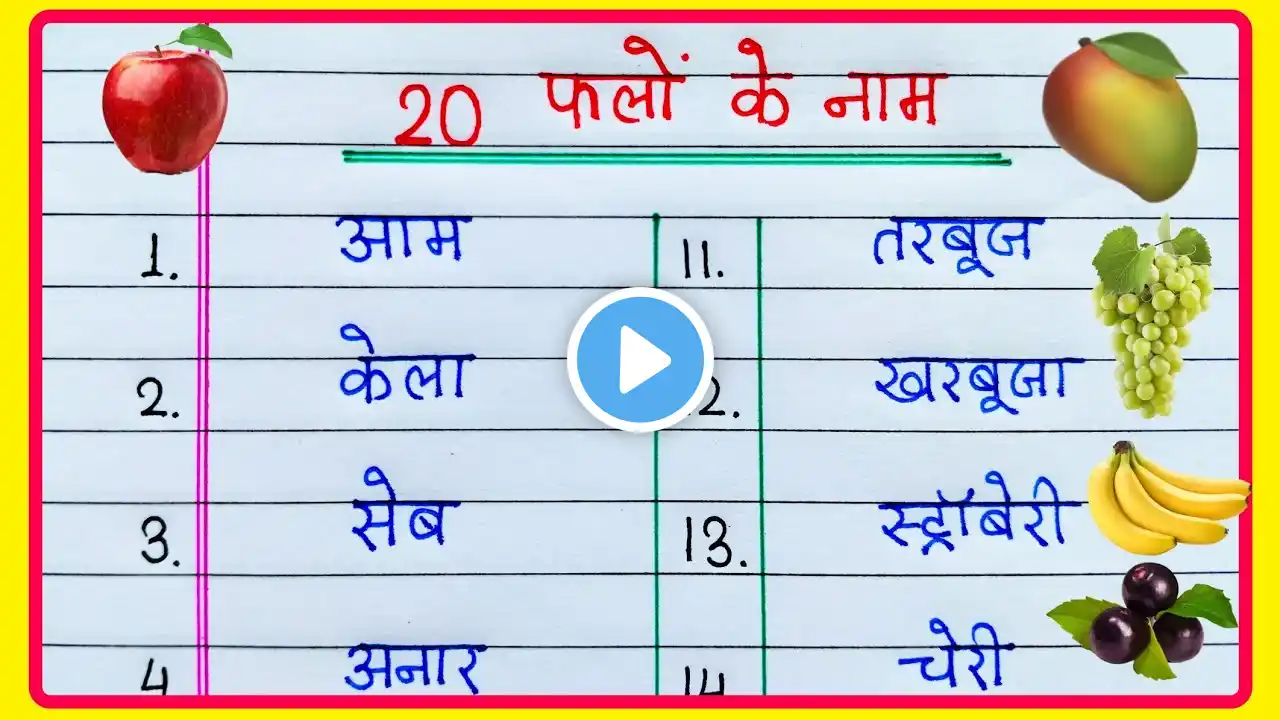 20 फलों के नाम
1. आम
2. केला
3. सेब
4 अनार
11. तरबूज
12. खरबूजा
13. स्ट्रॉबेरी
14 चेरी